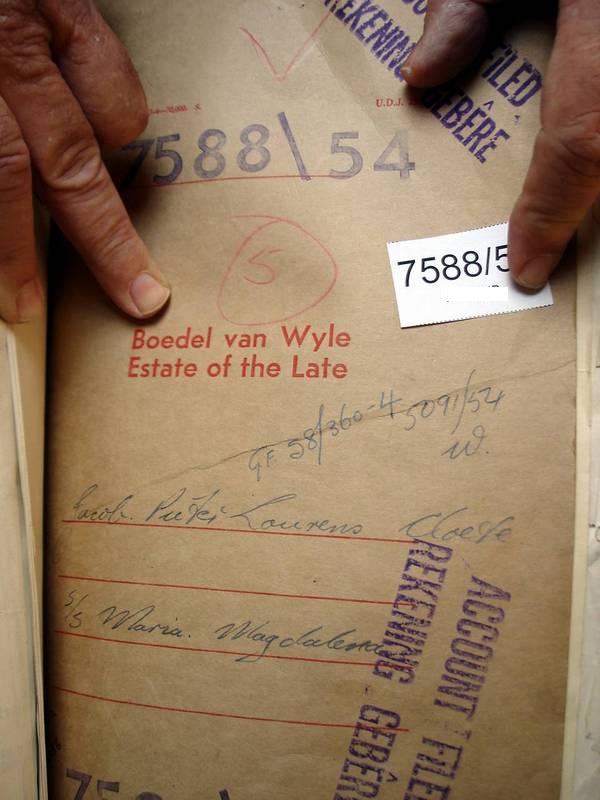 FILED
REKENING GEBÊRE
U.D.J.
7588\54
5
7588/5
Boedel van Wyle
Estate of the Late
G.F. 58/360-4 5091/54
W.
Jacob. Pieter Lourens Cloete
s/s Maria. Magdalena
ACCOUNT FILED
REKENING GEBÊRE